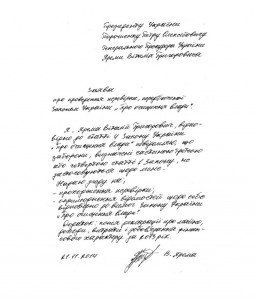 Президенту України
Порошенку Петру Олексійовичу
Генерального прокурора України
Яреми Віталія Григоровича
Заява
про проведення перевірки, передбаченої
Законом України „Про очищення влади"
Я, Ярема Віталій Григорович, відпо-
відно до статті 4 Закону України
„Про очищення влади" повідомляю, що
заборони, визначені частиною третьою
або четвертою статті 1 Закону, не
застосовуються щодо мене.
Надаю згоду на:
- проходження перевірки;
- оприлюднення відомостей щодо себе
відповідно до вимог Закону України
„Про очищення влади".
Додаток: копія декларації про майно,
доходи, витрати і зобов'язання фінан-
сового характеру за 2013 рік.
21.11.2014
В. Ярема